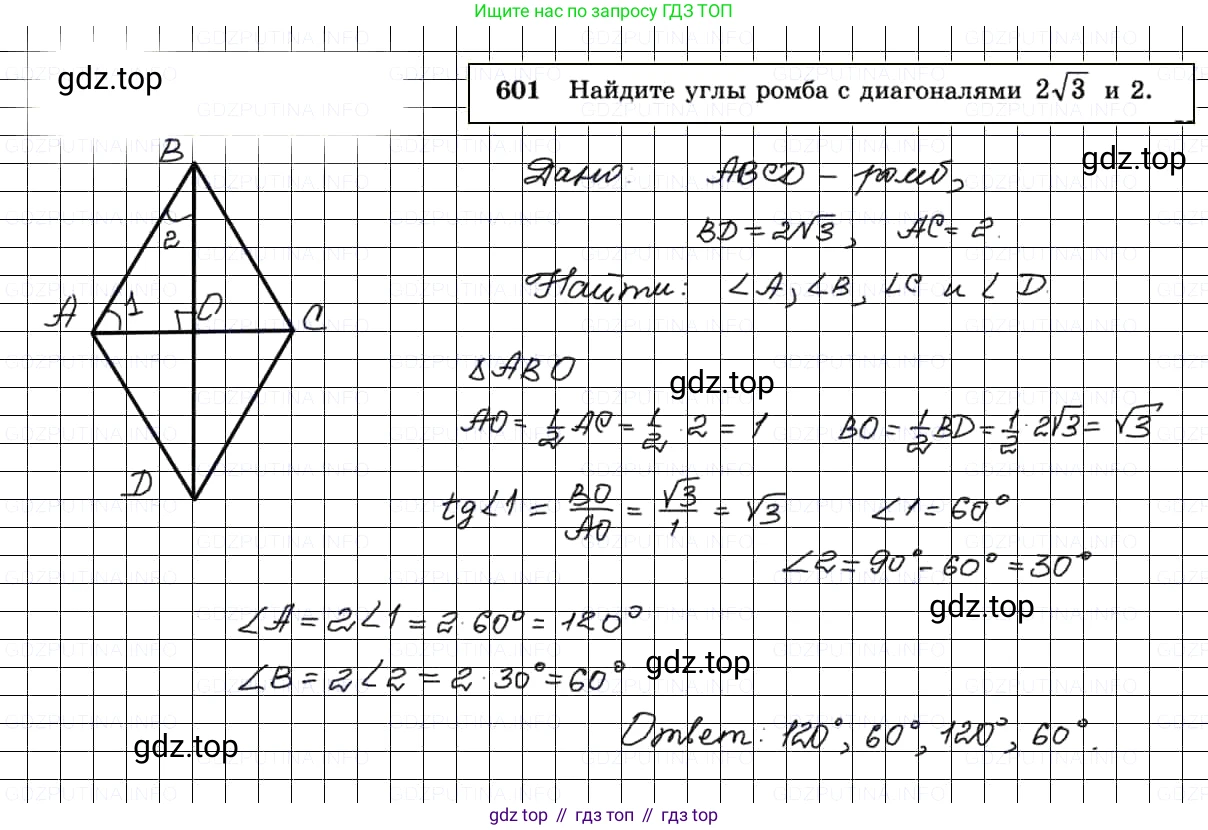 Ищите нас по запросу ГДЗ ТОП
gdz.top
601 Найдите углы ромба с диагоналями 2√3 и 2.
gdz.top
Дано: ABCD – ромб,
BD = 2√3, AC = 2.
Найти: ∠A, ∠B, ∠C и ∠D.
B
2
A 1 O C
D
△ABO
gdz.top
AO = 1/2 AC = 1/2 · 2 = 1 BO = 1/2 BD = 1/2 · 2√3 = √3
tg∠1 = BO/AO = √3/1 = √3 ∠1 = 60°
∠2 = 90° – 60° = 30°
gdz.top
∠A = 2∠1 = 2 · 60° = 120°
∠B = 2∠2 = 2 · 30° = 60°
gdz.top
Ответ: 120°, 60°, 120°, 60°.
gdz.top
gdz top // гдз топ // гдз top